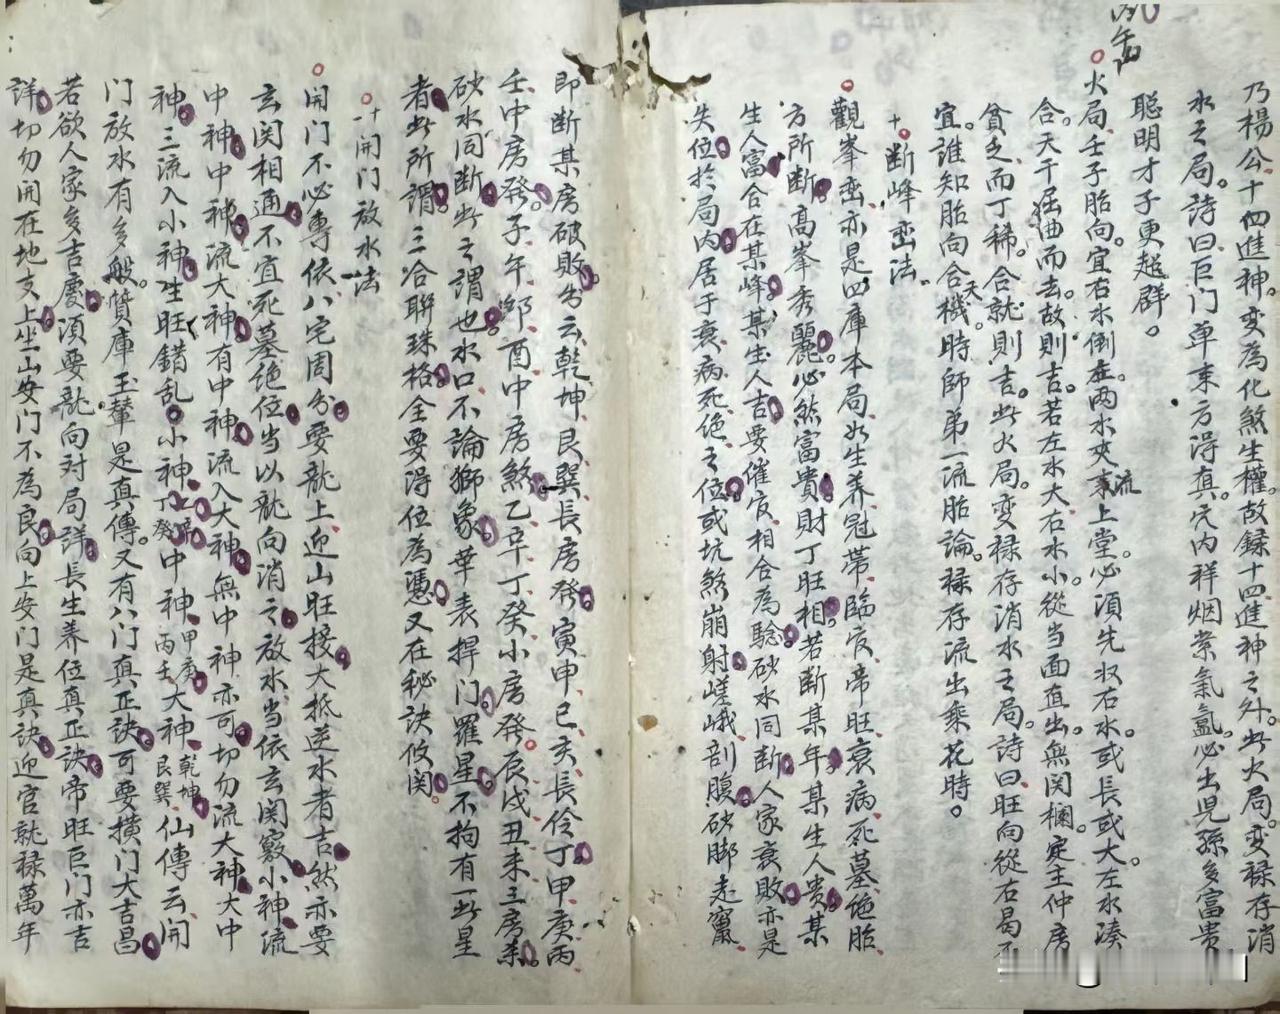 丙午
乃楊公十四進神。变為化煞生權。故録十四進神之外。此火局。变禄存消
水之局。詩曰。巨门单来方得真。穴内祥烟紫氣氳。必出児孫多富贵
聪明才子更超群。
火局。壬子胎向。宜右水倒左。两水夾流上堂。必須先収右水。或長或大。左水湊
合。天干屈曲而去。故則吉。若左水大。右水小。從当面直出。無関欄。定主仲房
貧乏而丁稀。合就則吉。此火局。变禄存消水之局。詩曰旺向從右
宜。谁知胎向合天機。時師弟一流胎論。禄存流出乘花時。
十断峰峦法。
觀峯峦亦是四庫本局。如生养冠帶臨官帝旺衰病死墓绝胎
方所断。高峯秀麗。必然富貴。財丁旺相。若断某年某生人贵。某
生人富。合在某峰。某生人吉。要催官相合為驗。砂水同断。人家衰敗。亦是
失位於局内。居于衰病死绝之位。或坑煞崩射嵯峨剖腹砂脚走竄
即断某房破敗。分云乾坤艮巽長房發。寅申巳亥長伶丁。甲庚丙
壬中房發。子午卯酉中房煞。乙辛丁癸小房發。辰戌丑未三房杀。
砂水同断。此之謂也。水口不論獅象華表捍门羅星。不拘有一此星
者。此所謂三合聯珠格。全要得位為憑。又在秘訣攸関。
十一開门放水法
開门不必專依八宅周分。要龍上迎山旺接。大抵逆水者吉。然亦要
玄関相通。不宜死墓绝位。当以龍向消之。放水当依玄関竅。小神流
中神。中神流大神。有中神流入大神。無中神亦可。切勿流大神。大中
神三流入小神。生旺錯乱。小神乙辛丁癸中神甲庚丙壬大神乾坤艮巽仙傳云。開
门放水有多般。質庫玉輦是真傳。又有八门真正訣。可要横门大吉昌
若欲人家多吉慶。須要龍向对局詳。長生养位真正訣。帝旺巨门亦吉
詳。切勿開在地支上。坐山安门不為良。向上安门是真訣。迎官就禄萬年